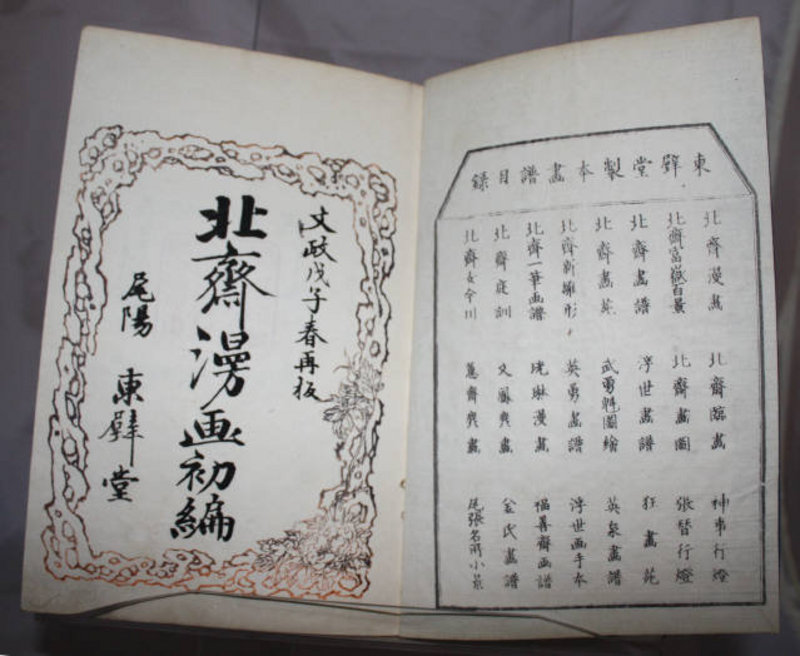 東壁堂製本畫譜目録
北齋漫畫 北齋臨畫 神事行燈
北齋富嶽百景 北齋畫圖 張替行燈
北齋畫譜 浮世畫譜 狂畫苑
北齋畫苑 武勇魁圖繪 英泉畫譜
北齋新雛形 英勇畫譜 浮世画手本
北齋一筆画譜 光琳漫畫 福善齋画譜
北齋庭訓 文鳳麁畫 金氏畫譜
北齋女今川 蕙齋麁畫 尾張名所小景
文政戊子春再板
北齋漫画初編
尾陽 東壁堂